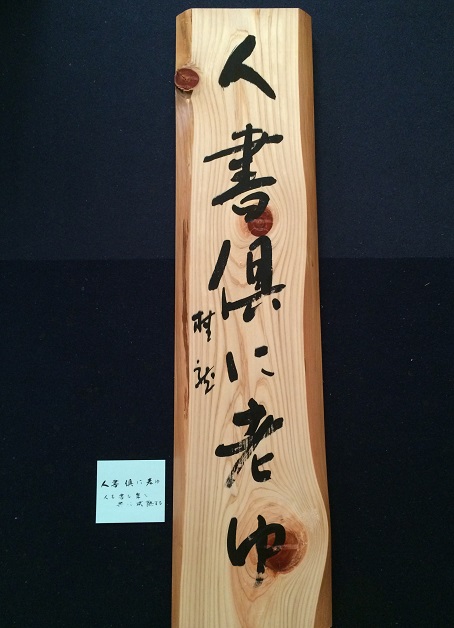 人書倶に老ゆ
人書倶に老ゆ
人も書も
共に成熟する